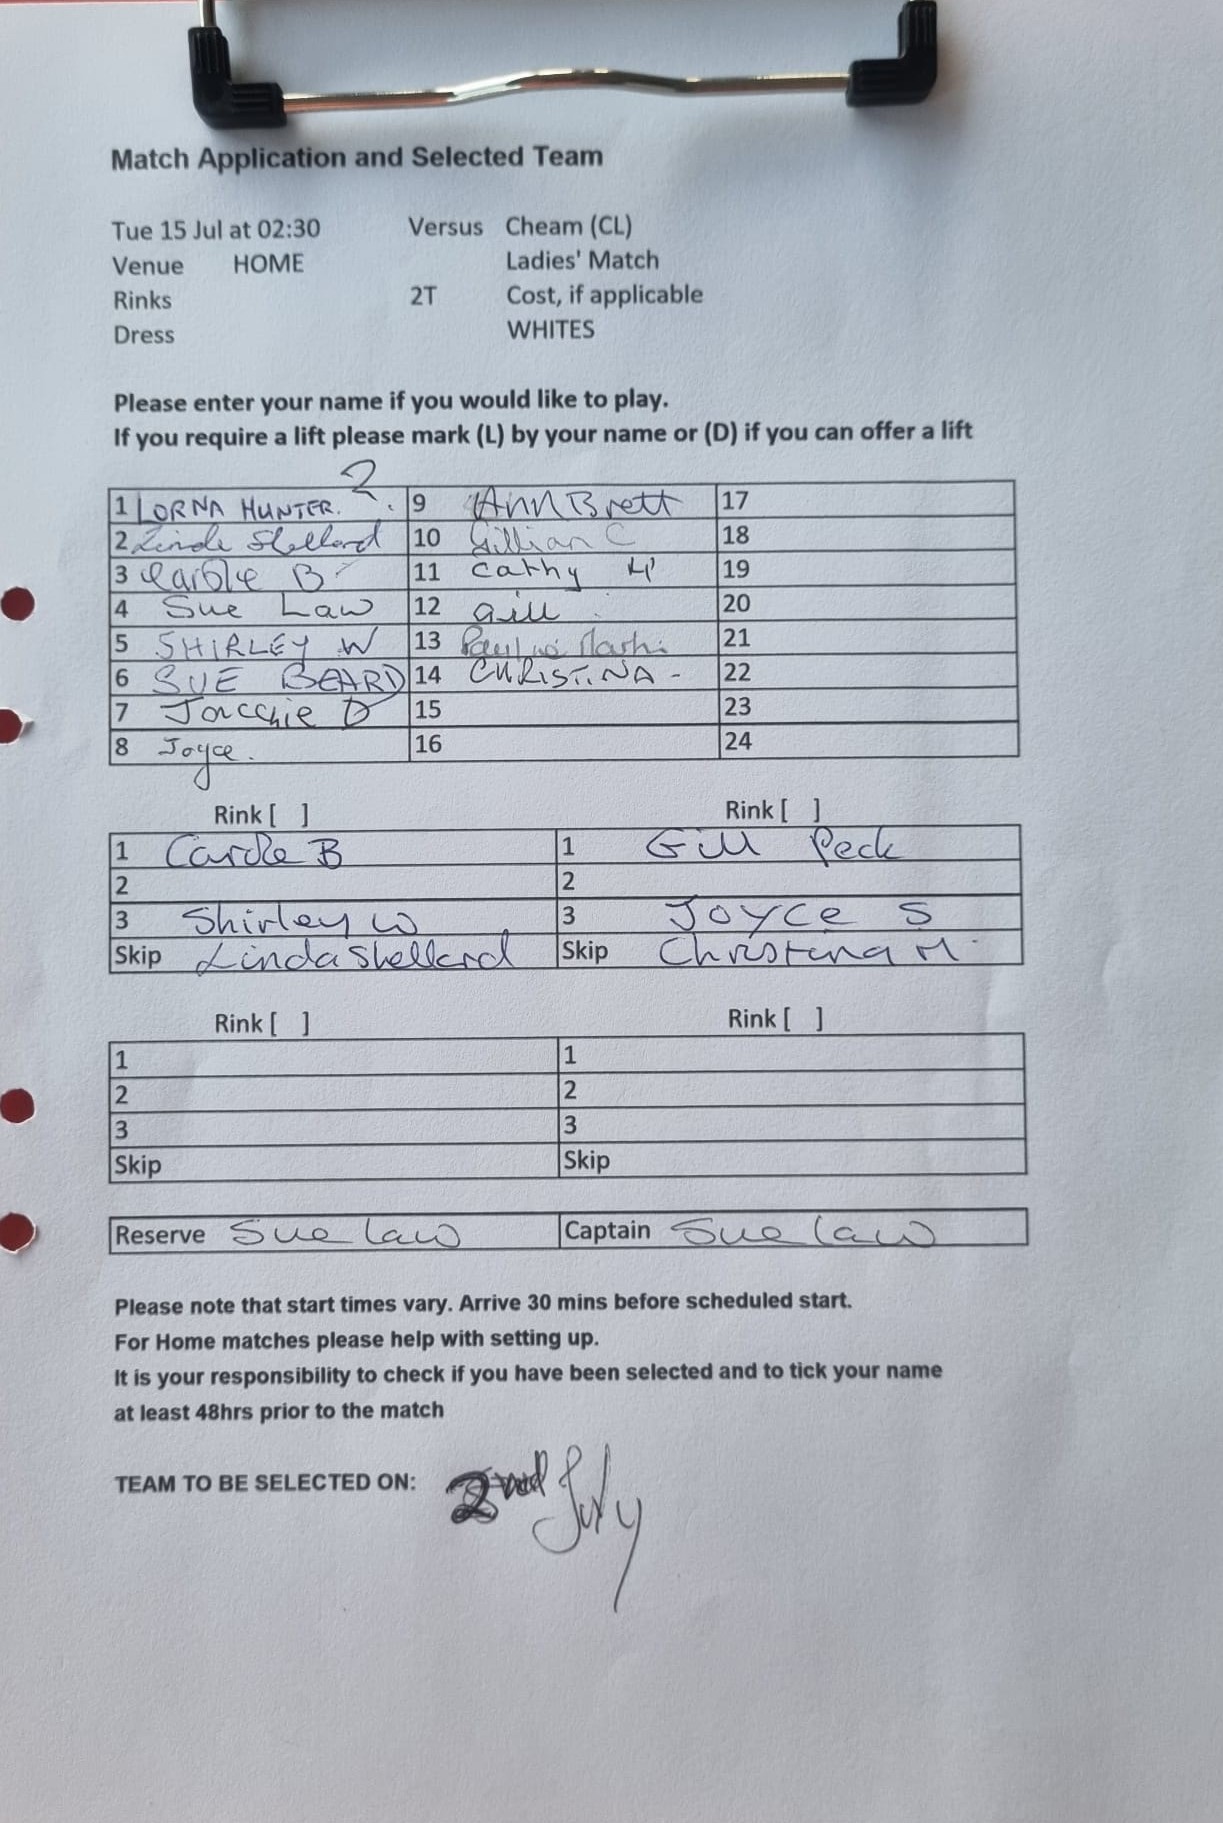 Match Application and Selected Team
Tue 15 Jul at 02:30 Versus Cheam (CL)
Venue HOME Ladies' Match
Rinks 2T Cost, if applicable
Dress WHITES
Please enter your name if you would like to play.
If you require a lift please mark (L) by your name or (D) if you can offer a lift
1 LORNA HUNTER. ? 9 Ann Brett 17
2 Linda Shellard 10 Gillian C 18
3 Carole B 11 Cathy H 19
4 Sue Law 12 Gill 20
5 SHIRLEY W 13 21
6 SUE BEARD 14 CHRISTINA - 22
7 Jacchie D 15 23
8 Joyce. 16 24
Rink [ ] Rink [ ]
1 Carole B 1 Gill Peck
2 2
3 Shirley W 3 Joyce S
Skip Linda Shellard Skip Christina M
Rink [ ] Rink [ ]
1 1
2 2
3 3
Skip Skip
Reserve Sue Law Captain Sue Law
Please note that start times vary. Arrive 30 mins before scheduled start.
For Home matches please help with setting up.
It is your responsibility to check if you have been selected and to tick your name
at least 48hrs prior to the match
TEAM TO BE SELECTED ON: 2nd July